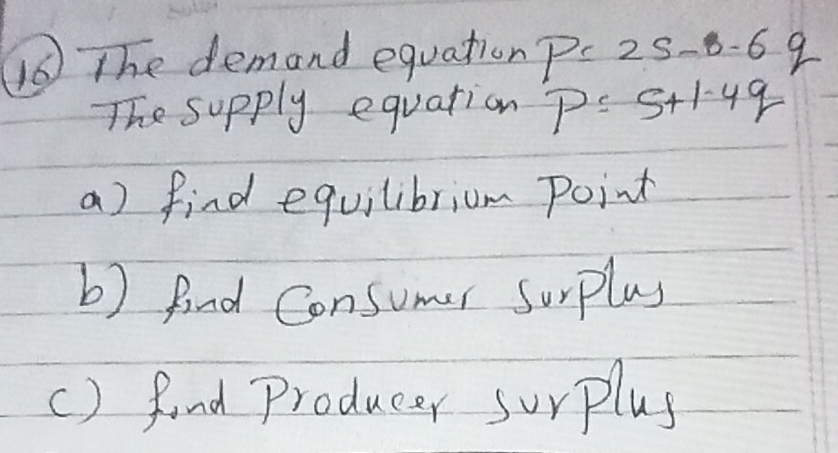 16 The demand equation P= 25-0.6q
The supply equation P= 5+1.4q
a) find equilibrium point
b) find Consumer surplus
c) find Producer surplus